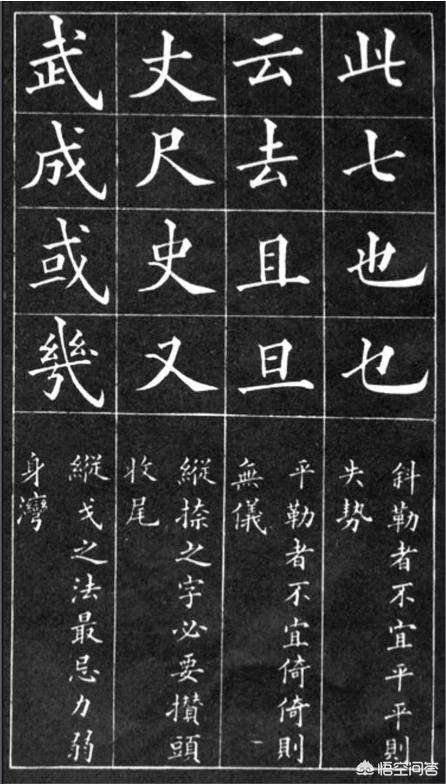 此七也乜
斜勒者不宜平平則
失勢
云去且旦
平勒者不宜倚倚則
無儀
丈尺史又
縱捺之字必要攢頭
收尾
武成或幾
縱戈之法最忌力弱
身灣
悟空问答